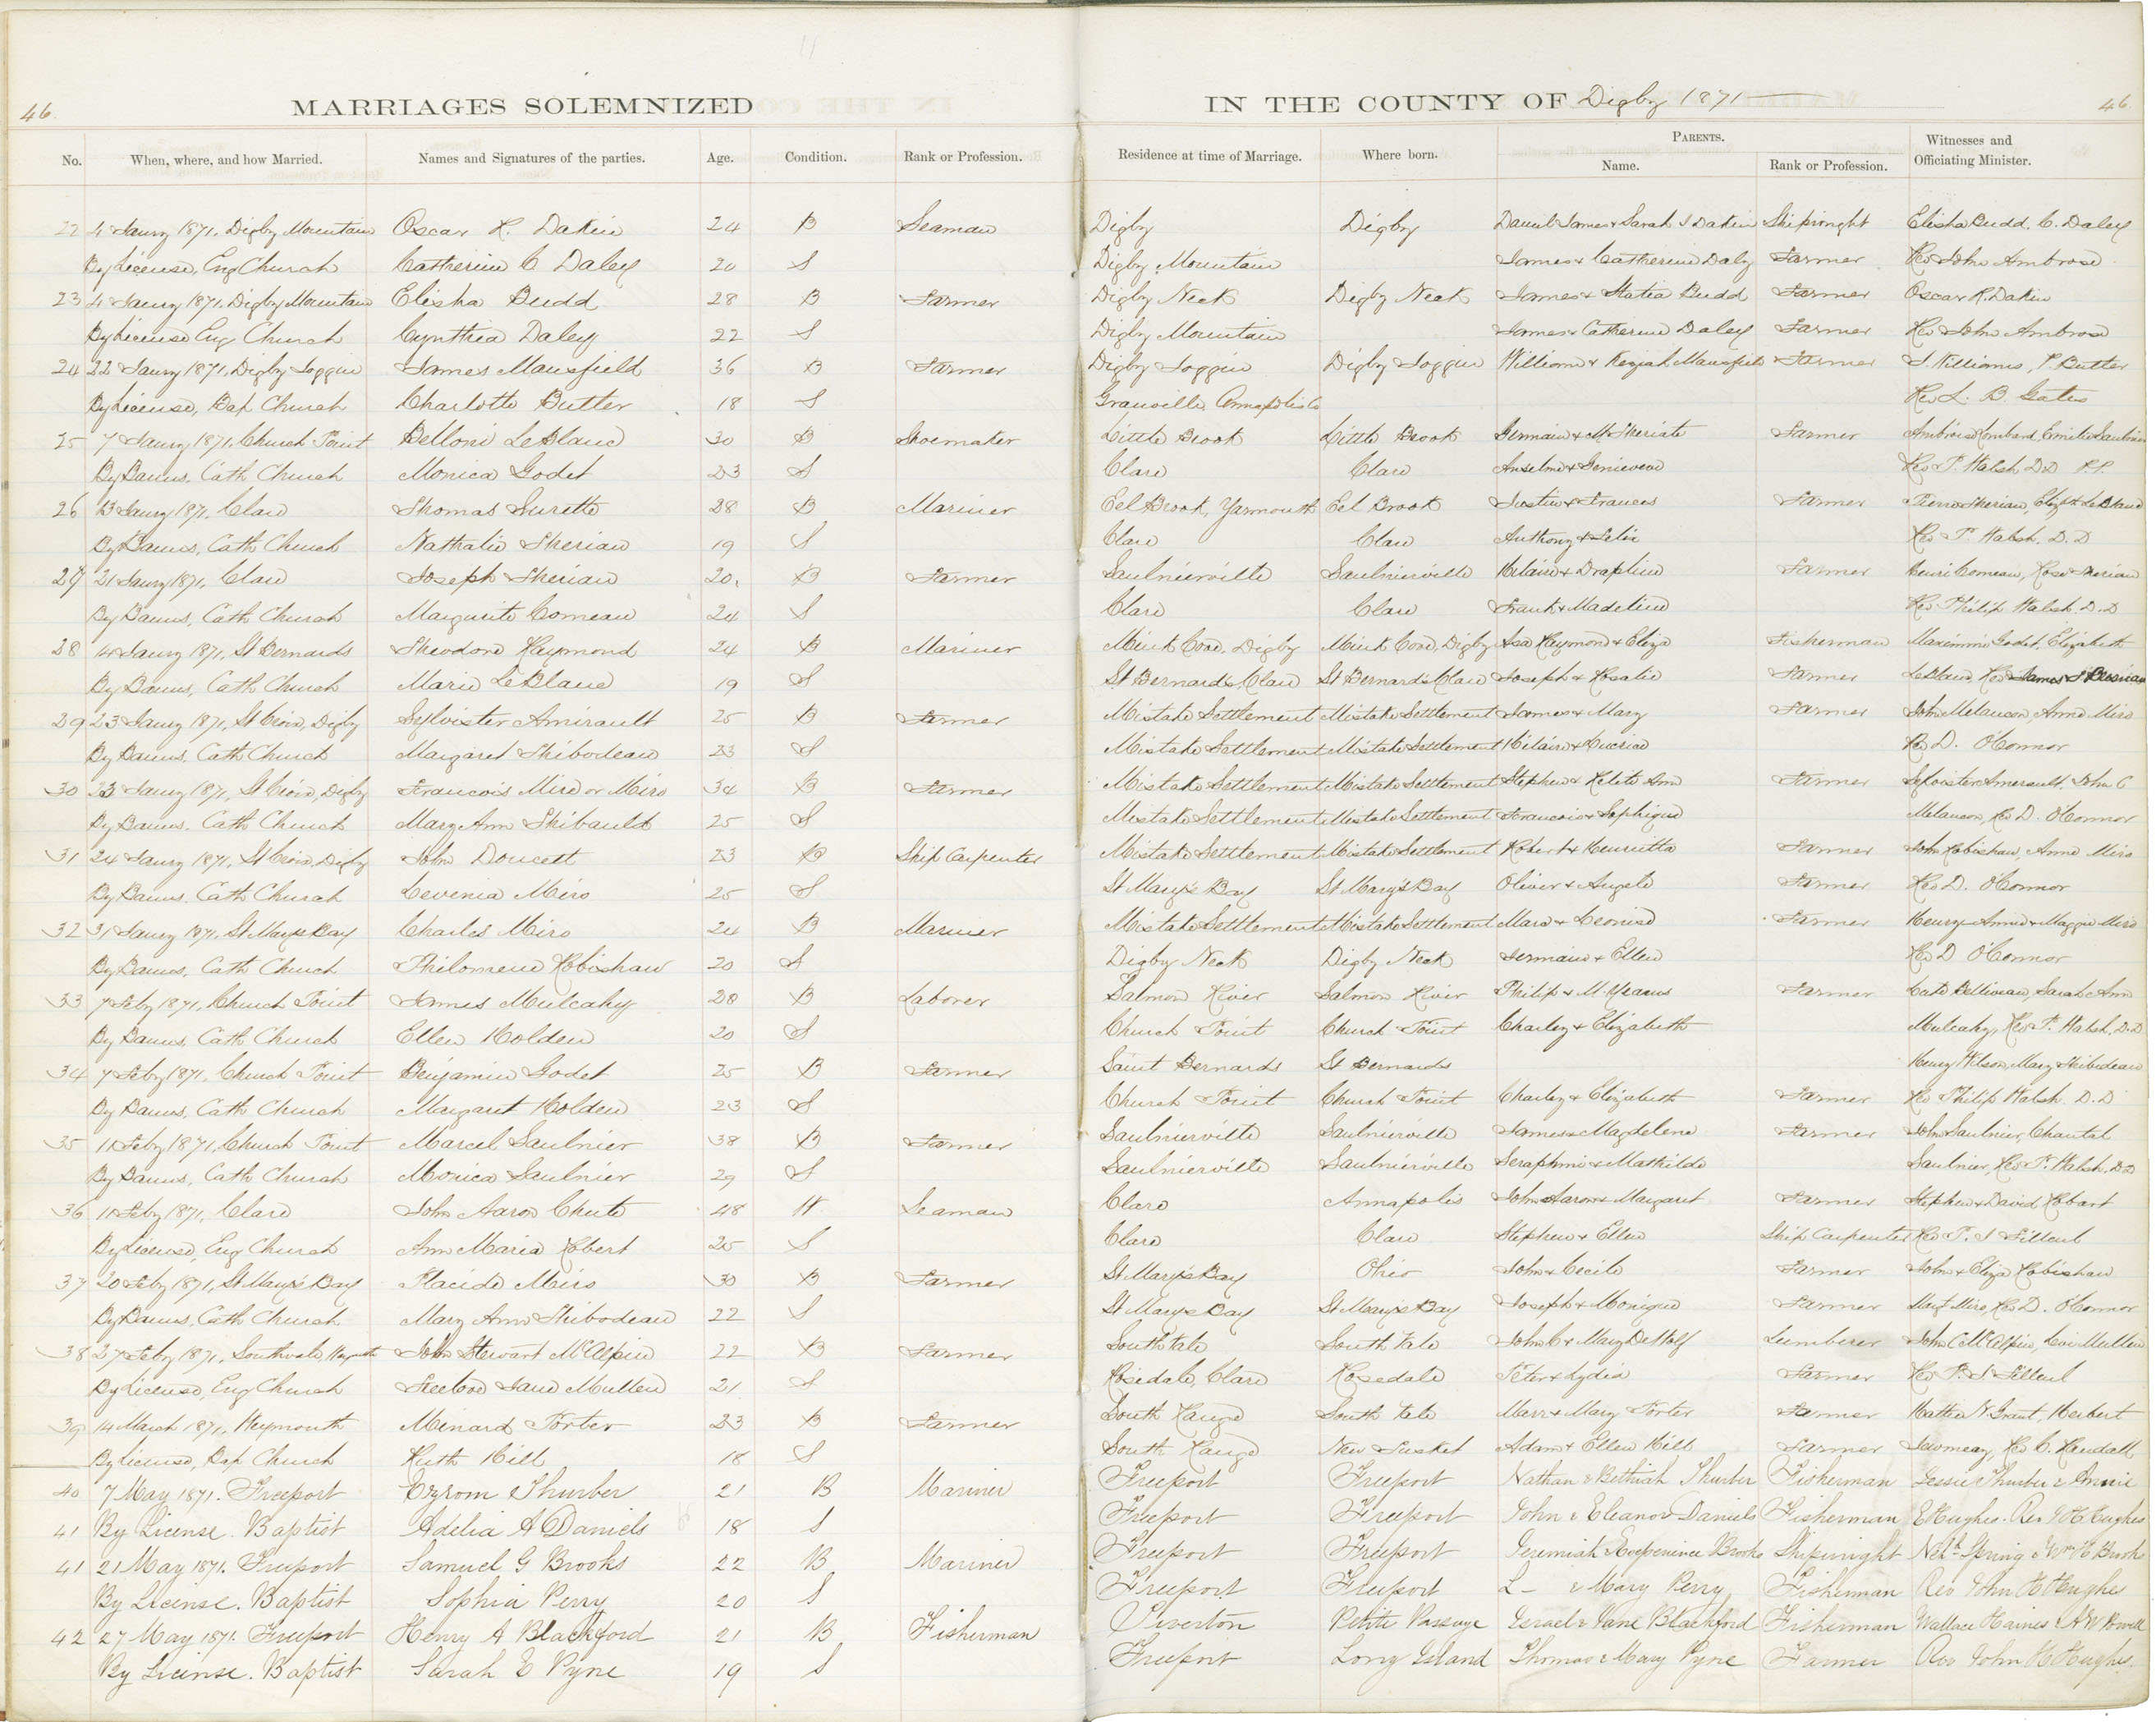 46. MARRIAGES SOLEMNIZED IN THE COUNTY OF Digby 1871 46.
No. When, where, and how Married. Names and Signatures of the parties. Age. Condition. Rank or Profession. Residence at time of Marriage. Where born. PARENTS. Name. Rank or Profession. Witnesses and Officiating Minister.
22 4 Jany 1871, Digby Mountain Oscar R. Dakin 24 B Seaman Digby Digby Daniel James & Sarah J Dakin Shipwright Elisha Budd, C. Daley
By License, Eng Church Catherine C Daley 20 S Digby Mountain James & Catherine Daly Farmer Rev John Ambrose
23 4 Jany 1871, Digby Mountain Elisha Budd 28 B Farmer Digby Neck Digby Neck James & Statia Budd Farmer Oscar R. Dakin
By License Eng Church Cynthia Daley 22 S Digby Mountain James & Catherine Daley Farmer Rev John Ambrose
24 22 Jany 1871, Digby Joggin James Mansfield 36 B Farmer Digby Joggin Digby Joggin William & Keziah Mansfield Farmer J. Williams, P. Butter
By License, Bap Church Charlotte Butter 18 S Granville Annapolis Co Rev L. B. Gates
25 7 Jany 1871, Church Point Belloni LeBlanc 30 B Shoemaker Little Brook Little Brook Germain & M. Theriate Farmer Ambroise Lombard, Emilie Saulnier
By Banns, Cath Church Monica Godet 23 S Clare Clare Anselme & Genieveve Rev P. Walsh D.D P.P.
26 13 Jany 1871, Clare Thomas Surette 28 B Mariner Eel Brook, Yarmouth Eel Brook Justin & Frances Farmer Pierre Therian, Elizth LeBlanc
By Banns, Cath Church Nathalie Therian 19 S Clare Clare Anthony & Lelie Rev P. Walsh. D.D
27 21 Jany 1871, Clare Joseph Therian 20 B Farmer Saulnierville Saulnierville Hilaire & Drapline Farmer Henri Comeau, Rose Therian
By Banns, Cath Church Marguerite Comeau 24 S Clare Clare Frank & Madeline Rev Philip Walsh. D.D
28 4 Jany 1871, St Bernards Theodore Raymond 24 B Mariner Mink Cove, Digby Mink Cove, Digby Asa Raymond & Eliza Fisherman Maximine Godet, Elizabeth
By Banns, Cath Church Marie LeBlanc 19 S St Bernards, Clare St Bernards Clare Joseph & Rosalie Farmer LeBlanc Rev James
29 23 Jany 1871, St Croix, Digby Sylvister Amirault 25 B Farmer Mistake Settlement Mistake Settlement James & Mary Farmer John Melancon, Anne Miro
By Banns, Cath Church Margaret Thibodeau 23 S Mistake Settlement Mistake Settlement Hilaire & Rev D. O'Connor
30 23 Jany 1871, St Croix, Digby Francois Mire or Miro 34 B Farmer Mistake Settlement Mistake Settlement Stephen & Ann Farmer Sylvister Amerault, John C
By Banns. Cath Church Mary Ann Thibault 25 S Mistake Settlement Mistake Settlement Francois & Sophique Melancon, Rev D. O'Connor
31 24 Jany 1871, St Croix, Digby John Doucett 23 B Ship Carpenter Mistake Settlement Mistake Settlement Robert & Henrietta Farmer John Robishaw, Anne Miro
By Banns. Cath Church Levenia Miro 25 S St Mary's Bay St Mary's Bay Oliver & Angele Farmer Rev D. O'Connor
32 31 Jany 1871, St Marys Bay Charles Miro 24 B Mariner Mistake Settlement Mistake Settlement Marc & Leonise Farmer Henry Anne & Maggie Miro
By Banns, Cath Church Philomene Robishaw 20 S Digby Neck Digby Neck Germain & Ellen Rev D O'Connor
33 7 Feby 1871, Church Point James Mulcahy 28 B Laborer Salmon River Salmon River Philip & M. Farmer Cate Belliveau, Sarah Ann
By Banns, Cath Church Ellen Holden 20 S Church Point Church Point Charley & Elizabeth Mulcahy, Rev P. Walsh, D.D
34 7 Feby 1871, Church Point Benjamin Godet 25 B Farmer Saint Bernards St Bernards Henry Wilson, Mary Thibodeau
By Banns, Cath Church Margaret Holden 23 S Church Point Church Point Charley & Elizabeth Farmer Rev Philip Walsh. D.D
35 11 Feby 1871, Church Point Marcel Saulnier 38 B Farmer Saulnierville Saulnierville James & Magdelene Farmer John Saulnier, Chantal
By Banns, Cath Church Monica Saulnier 29 S Saulnierville Saulnierville Seraphin & Mathilde Saulnier, Rev P. Walsh. D.D
36 11 Feby 1871, Clare John Aaron Chute 48 W Seaman Clare Annapolis John Aaron & Margaret Farmer Stephen & David Robart
By License, Eng Church Ann Maria Robert 25 S Clare Clare Stephen & Ellen Ship Carpenter Rev P. J Filleul
37 20 Feby 1871, St Mary's Bay Placide Miro 30 B Farmer St Mary's Bay Ohio John & Cecile Farmer John & Eliza Robishaw
By Banns, Cath Church Mary Ann Thibodeau 22 S St Mary's Bay St Mary's Bay Joseph & Monique Farmer Mary Miro, Rev D. O'Connor
38 27 Feby 1871, Southvale Weymth John Stewart McAlpin 22 B Farmer South vale South vale John C & Mary DeWolf Lumberer John C McAlpin, Levi Mullen
By License, Eng Church Freelove Jane Mullen 21 S Rosedale, Clare Rosedale Peter & Lydia Farmer Rev P. J Filleul
39 14 March 1871, Weymouth Minard Porter 23 B Farmer South Range South vale Marr & Mary Porter Farmer Hattie N Grant, Herbert
By License, Bap Church Ruth Hill 18 S South Range New Tusket Adam & Ellen Hill Farmer Rev C. Randall
40 7 May 1871. Freeport Ezrom Thurber 21 B Mariner Freeport Freeport Nathan & Bethiah Thurber Fisherman Jessie Thurber & Annie
41 By License. Baptist Adelia A Daniels 18 S Freeport Freeport John & Eleanor Daniels Fisherman E Hughes. Rev J H Hughes
41 21 May 1871. Freeport Samuel G Brooks 22 B Mariner Freeport Freeport Jeremiah & Experience Brooks Shipwright Neh. Spring & Wm H Brooks
By License. Baptist Sophia Perry 20 S Freeport Freeport L— & Mary Perry Fisherman Rev John H Hughes
42 27 May 1871. Freeport Henry A Blackford 21 B Fisherman Tiverton Petite Passage Israel & Jane Blackford Fisherman Wallace Haines & A W Powell
By License. Baptist Sarah E Pyne 19 S Freeport Long Island Thomas & Mary Pyne Farmer Rev John H Hughes.